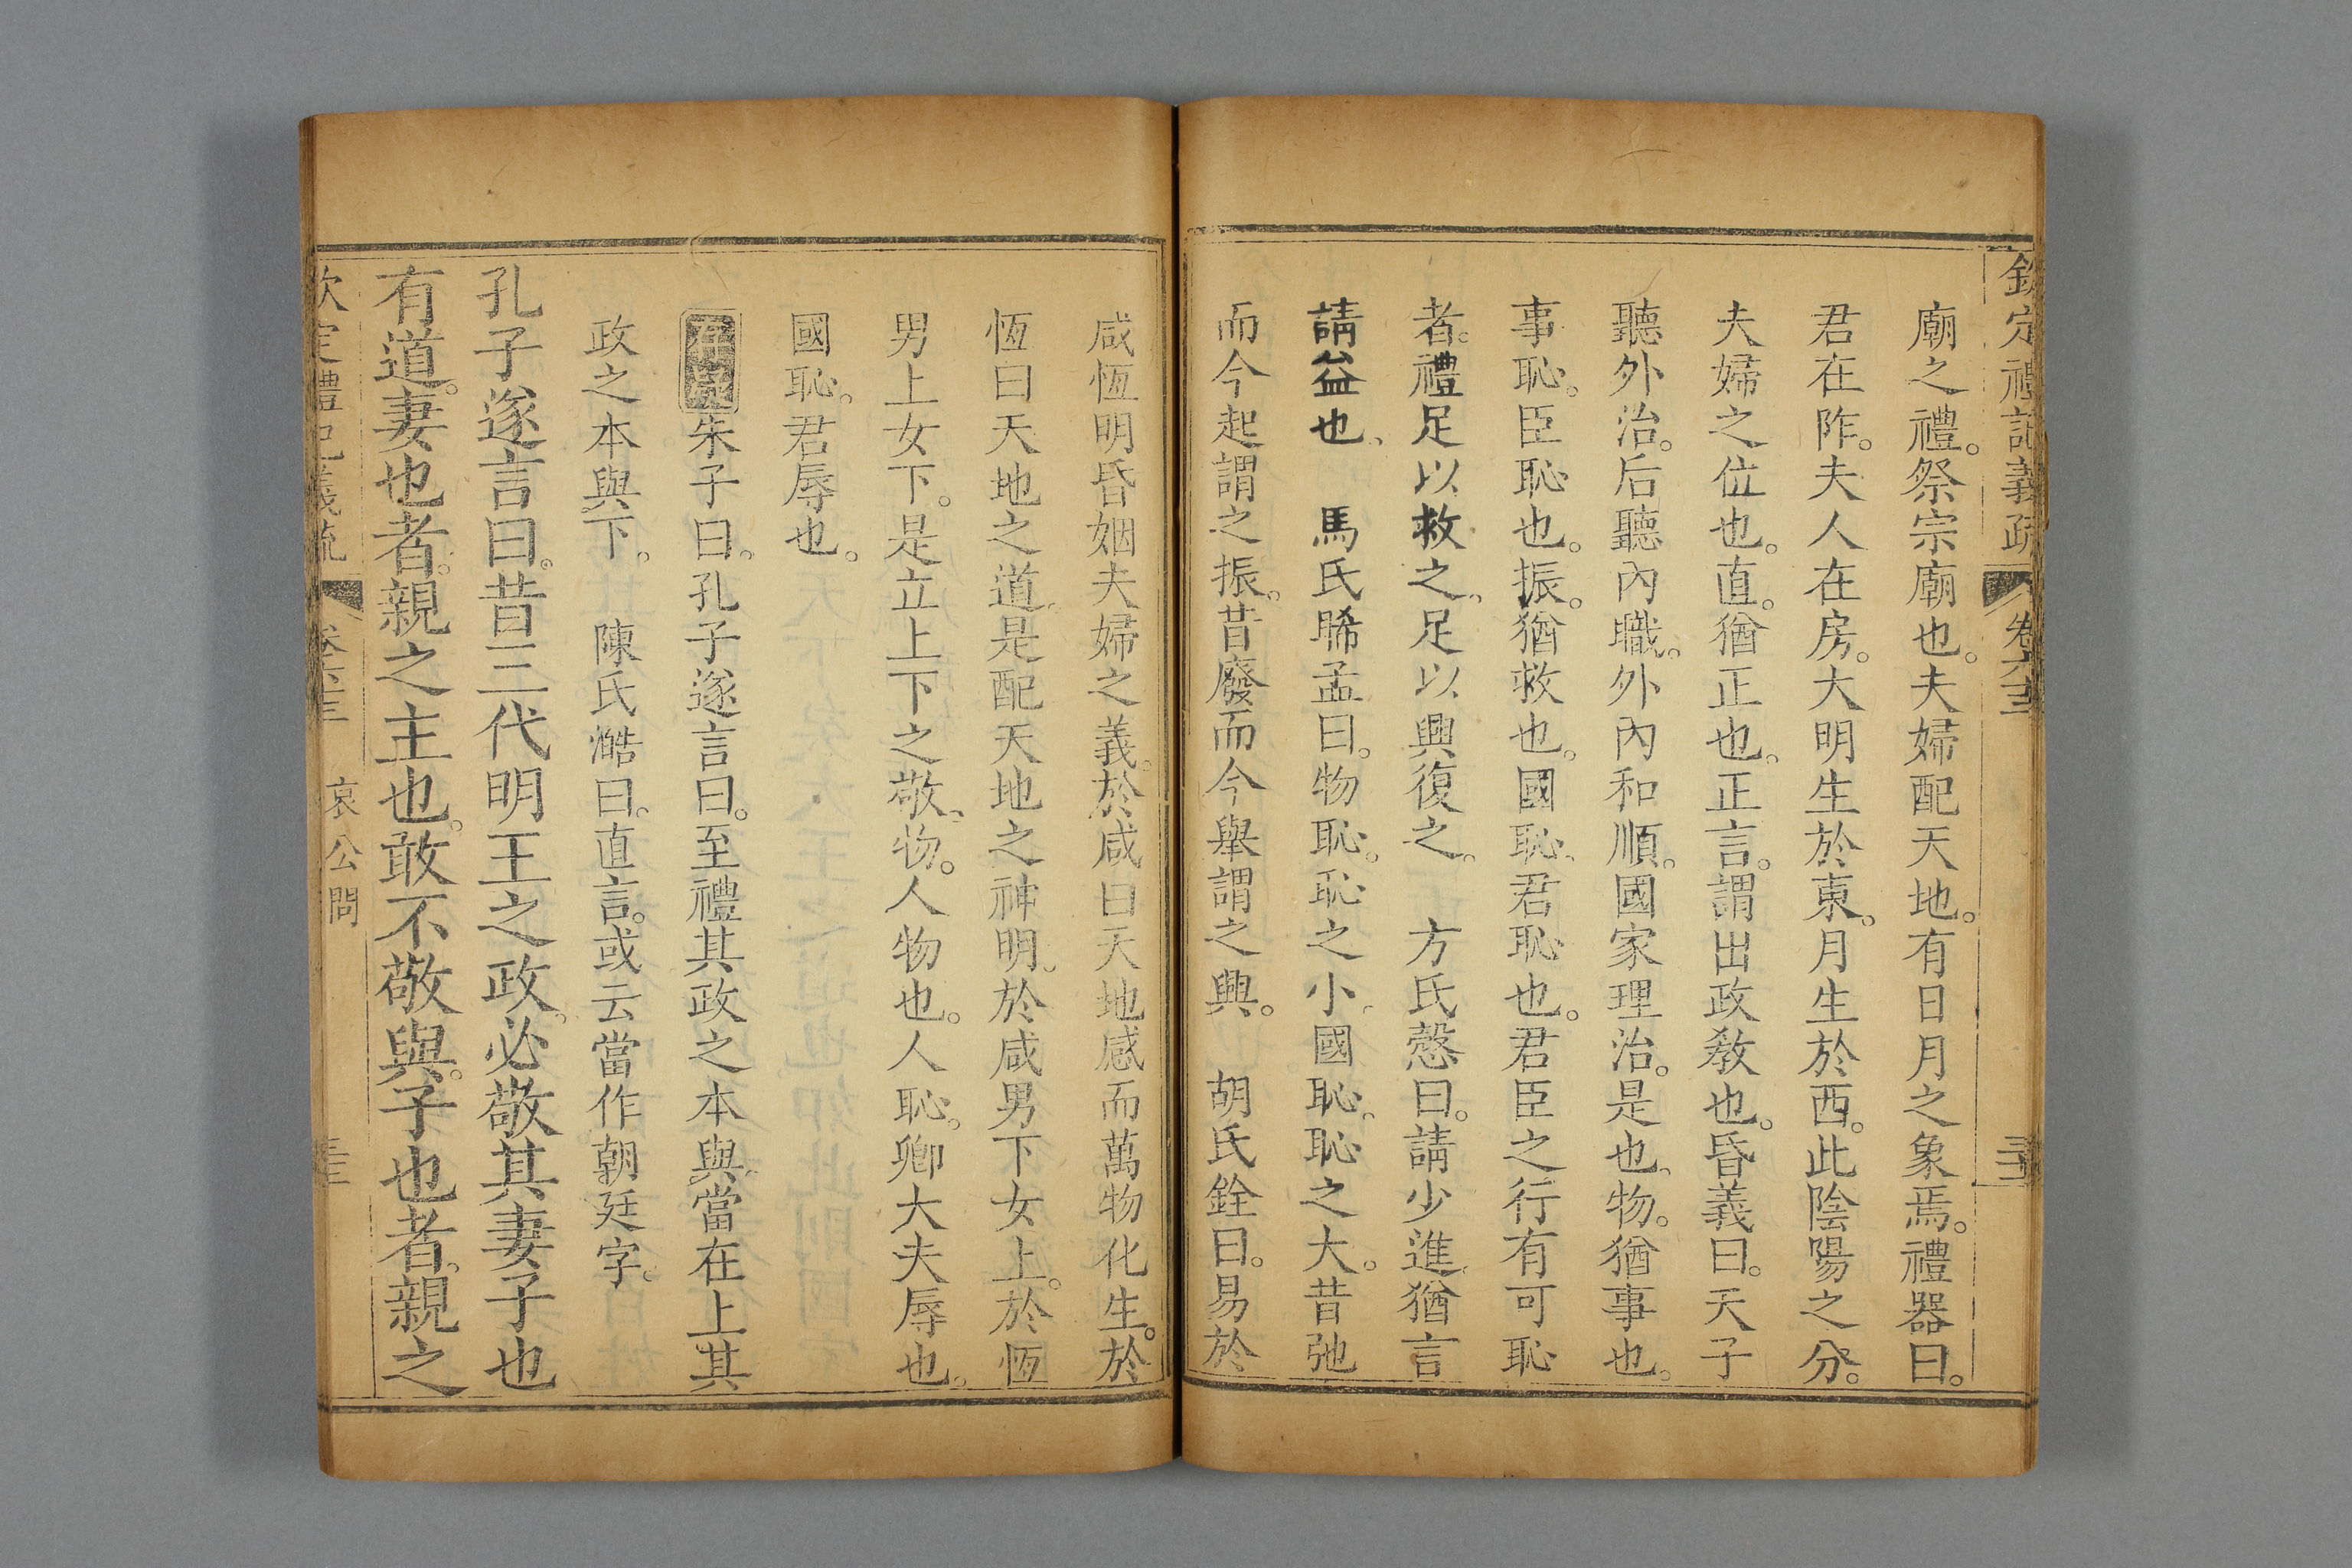 欽定禮記義疏 卷六十三
廟之禮。祭宗廟也。夫婦配天地。有日月之象焉。禮器曰。
君在阼。夫人在房。大明生於東。月生於西。此陰陽之分。
夫婦之位也。直。猶正也。正言。謂出政教也。昏義曰。天子
聽外治。后聽內職。外內和順。國家理治。是也。物。猶事也。
事恥。臣恥也。振。猶救也。國恥。君恥也。君臣之行有可恥
者。禮足以救之。足以興復之。 方氏慤曰。請少進。猶言
請益也。 馬氏睎孟曰。物恥。恥之小。國恥。恥之大。昔弛
而今起謂之振。昔廢而今舉謂之興。 胡氏銓曰。易於
咸恆明昏姻夫婦之義。於咸曰天地感而萬物化生。於
恆曰天地之道。是配天地之神明。於咸男下女上。於恆
男上女下。是立上下之敬。物。人物也。人恥。卿大夫辱也。
國恥。君辱也。
朱子曰。孔子遂言曰。至禮其政之本與。當在上其
政之本與下。 陳氏澔曰。直言。或云當作朝廷字。
孔子遂言曰。昔三代明王之政。必敬其妻子也
有道。妻也者。親之主也。敢不敬與。子也者。親之
欽定禮記義疏 卷六十三 哀公問